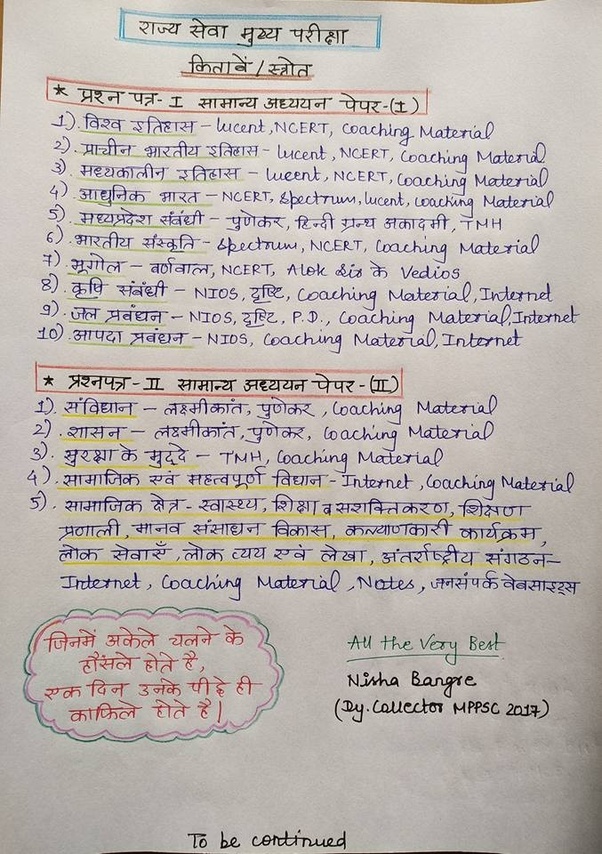 राज्य सेवा मुख्य परीक्षा
किताबें / स्त्रोत
* प्रश्न पत्र - I सामान्य अध्ययन पेपर - (I)
1). विश्व इतिहास - lucent, NCERT, Coaching Material
2). प्राचीन भारतीय इतिहास - lucent, NCERT, Coaching Material
3). मध्यकालीन इतिहास - lucent, NCERT, Coaching Material
4). आधुनिक भारत - NCERT, Spectrum, lucent, Coaching Material
5). मध्यप्रदेश संबंधी - पुणेकर, हिन्दी ग्रन्थ अकादमी, TMH
6). भारतीय संस्कृति - Spectrum, NCERT, Coaching Material
7) भूगोल - बर्णवाल, NCERT, Alok Sir के Vedios
8). कृषि संबंधी - NIOS, दृष्टि, Coaching Material, Internet
9). जल प्रबंधन - NIOS, दृष्टि, P.D., Coaching Material, Internet
10). आपदा प्रबंधन - NIOS, Coaching Material, Internet
* प्रश्नपत्र - II सामान्य अध्ययन पेपर - (II)
1). संविधान - लक्ष्मीकांत, पुणेकर, Coaching Material
2). शासन - लक्ष्मीकांत, पुणेकर, Coaching Material
3). सुरक्षा के मुद्दे - TMH, Coaching Material
4). सामाजिक एवं महत्वपूर्ण विधान - Internet, Coaching Material
5). सामाजिक क्षेत्र - स्वास्थ्य, शिक्षा व सशक्तिकरण, शिक्षण
प्रणाली, मानव संसाधन विकास, कल्याणकारी कार्यक्रम,
लोक सेवाएँ, लोक व्यय एवं लेखा, अंतर्राष्ट्रीय संगठन -
Internet, Coaching Material, Notes, जनसंपर्क वेबसाइट्स
जिनमें अकेले चलने के
हौंसले होते है,
एक दिन उनके पीछे ही
काफिले होते है।
All the Very Best
Nisha Bangre
(Dy. Collector MPPSC 2017)
To be continued